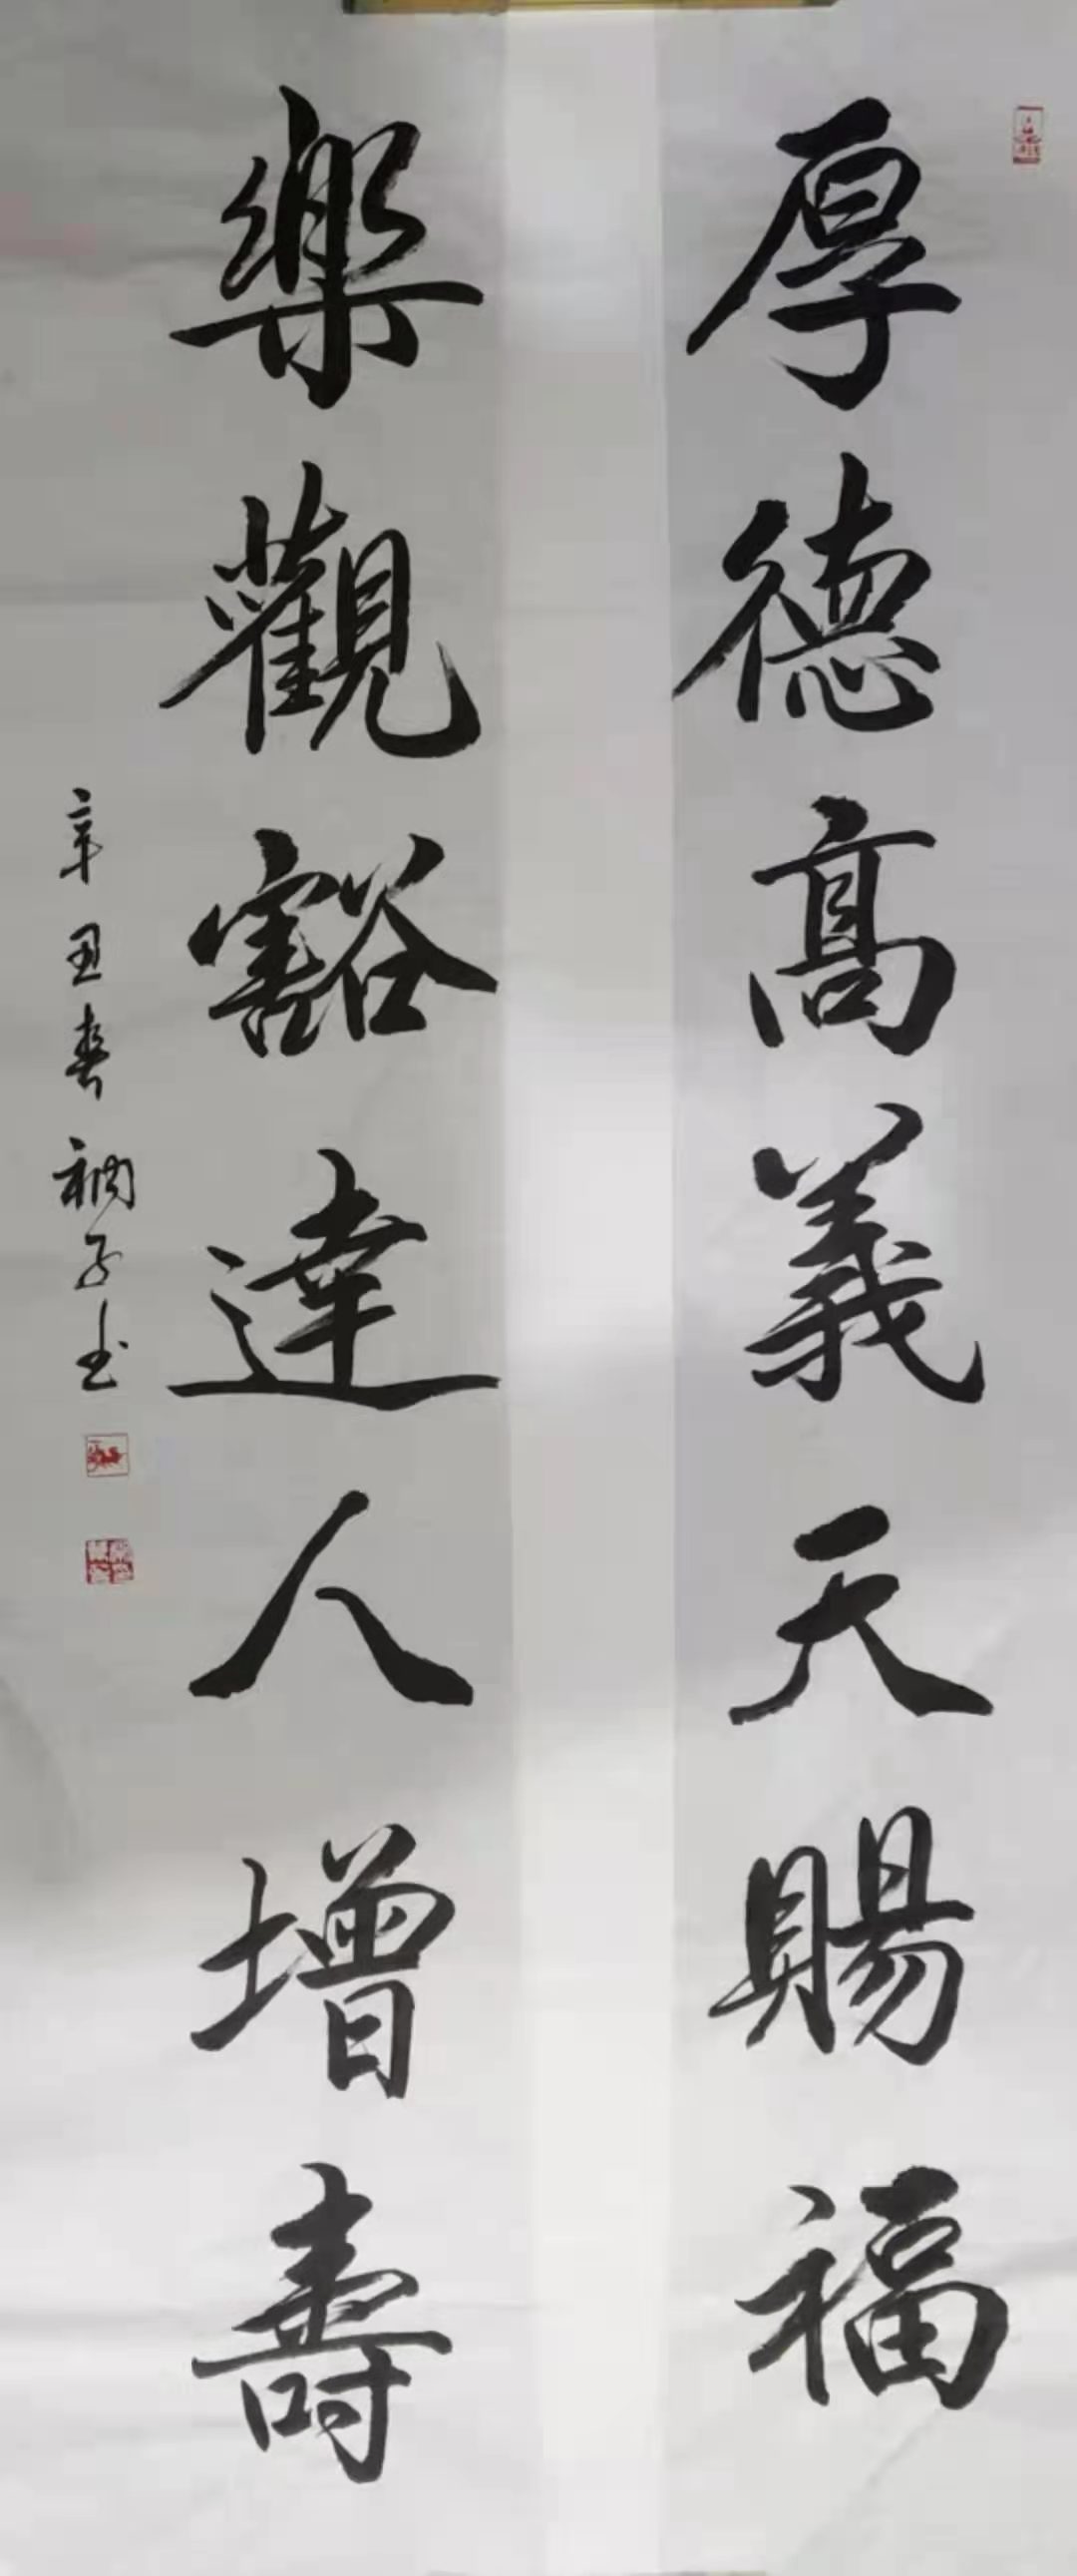 厚德高義天賜福
樂觀豁達人增壽
辛丑春